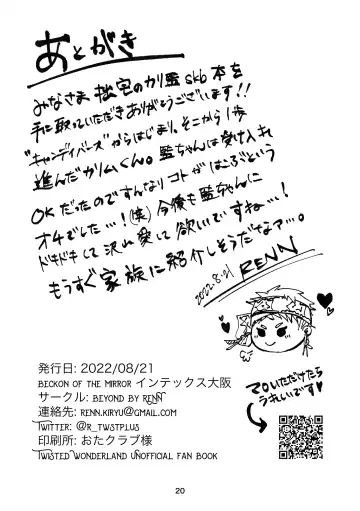 あとがき
みなさま 拙宅のカリ監skb本を
手に取っていただきありがとうございます!!
"キャンディバース"からはじまり、そこから1歩
進んだカリムくん。監ちゃんは受け入れ
OKだったのですんなりコトがはこぶという
オチでした…!(笑)今後も監ちゃんに
ドキドキして沢山愛して欲しいですね…!
もうすぐ家族に紹介しそうだなァ…。
2022.8.21 RENN
マロいただけたら
うれしいです♥
発行日: 2022/08/21
BECKON OF THE MIRROR インテックス大阪
サークル: BEYOND BY RENN
連絡先: RENN.KIRYU@GMAIL.COM
TWITTER: @R_TWSTPLUS
印刷所: おたクラブ様
TWISTED WONDERLAND UNOFFICIAL FAN BOOK
20